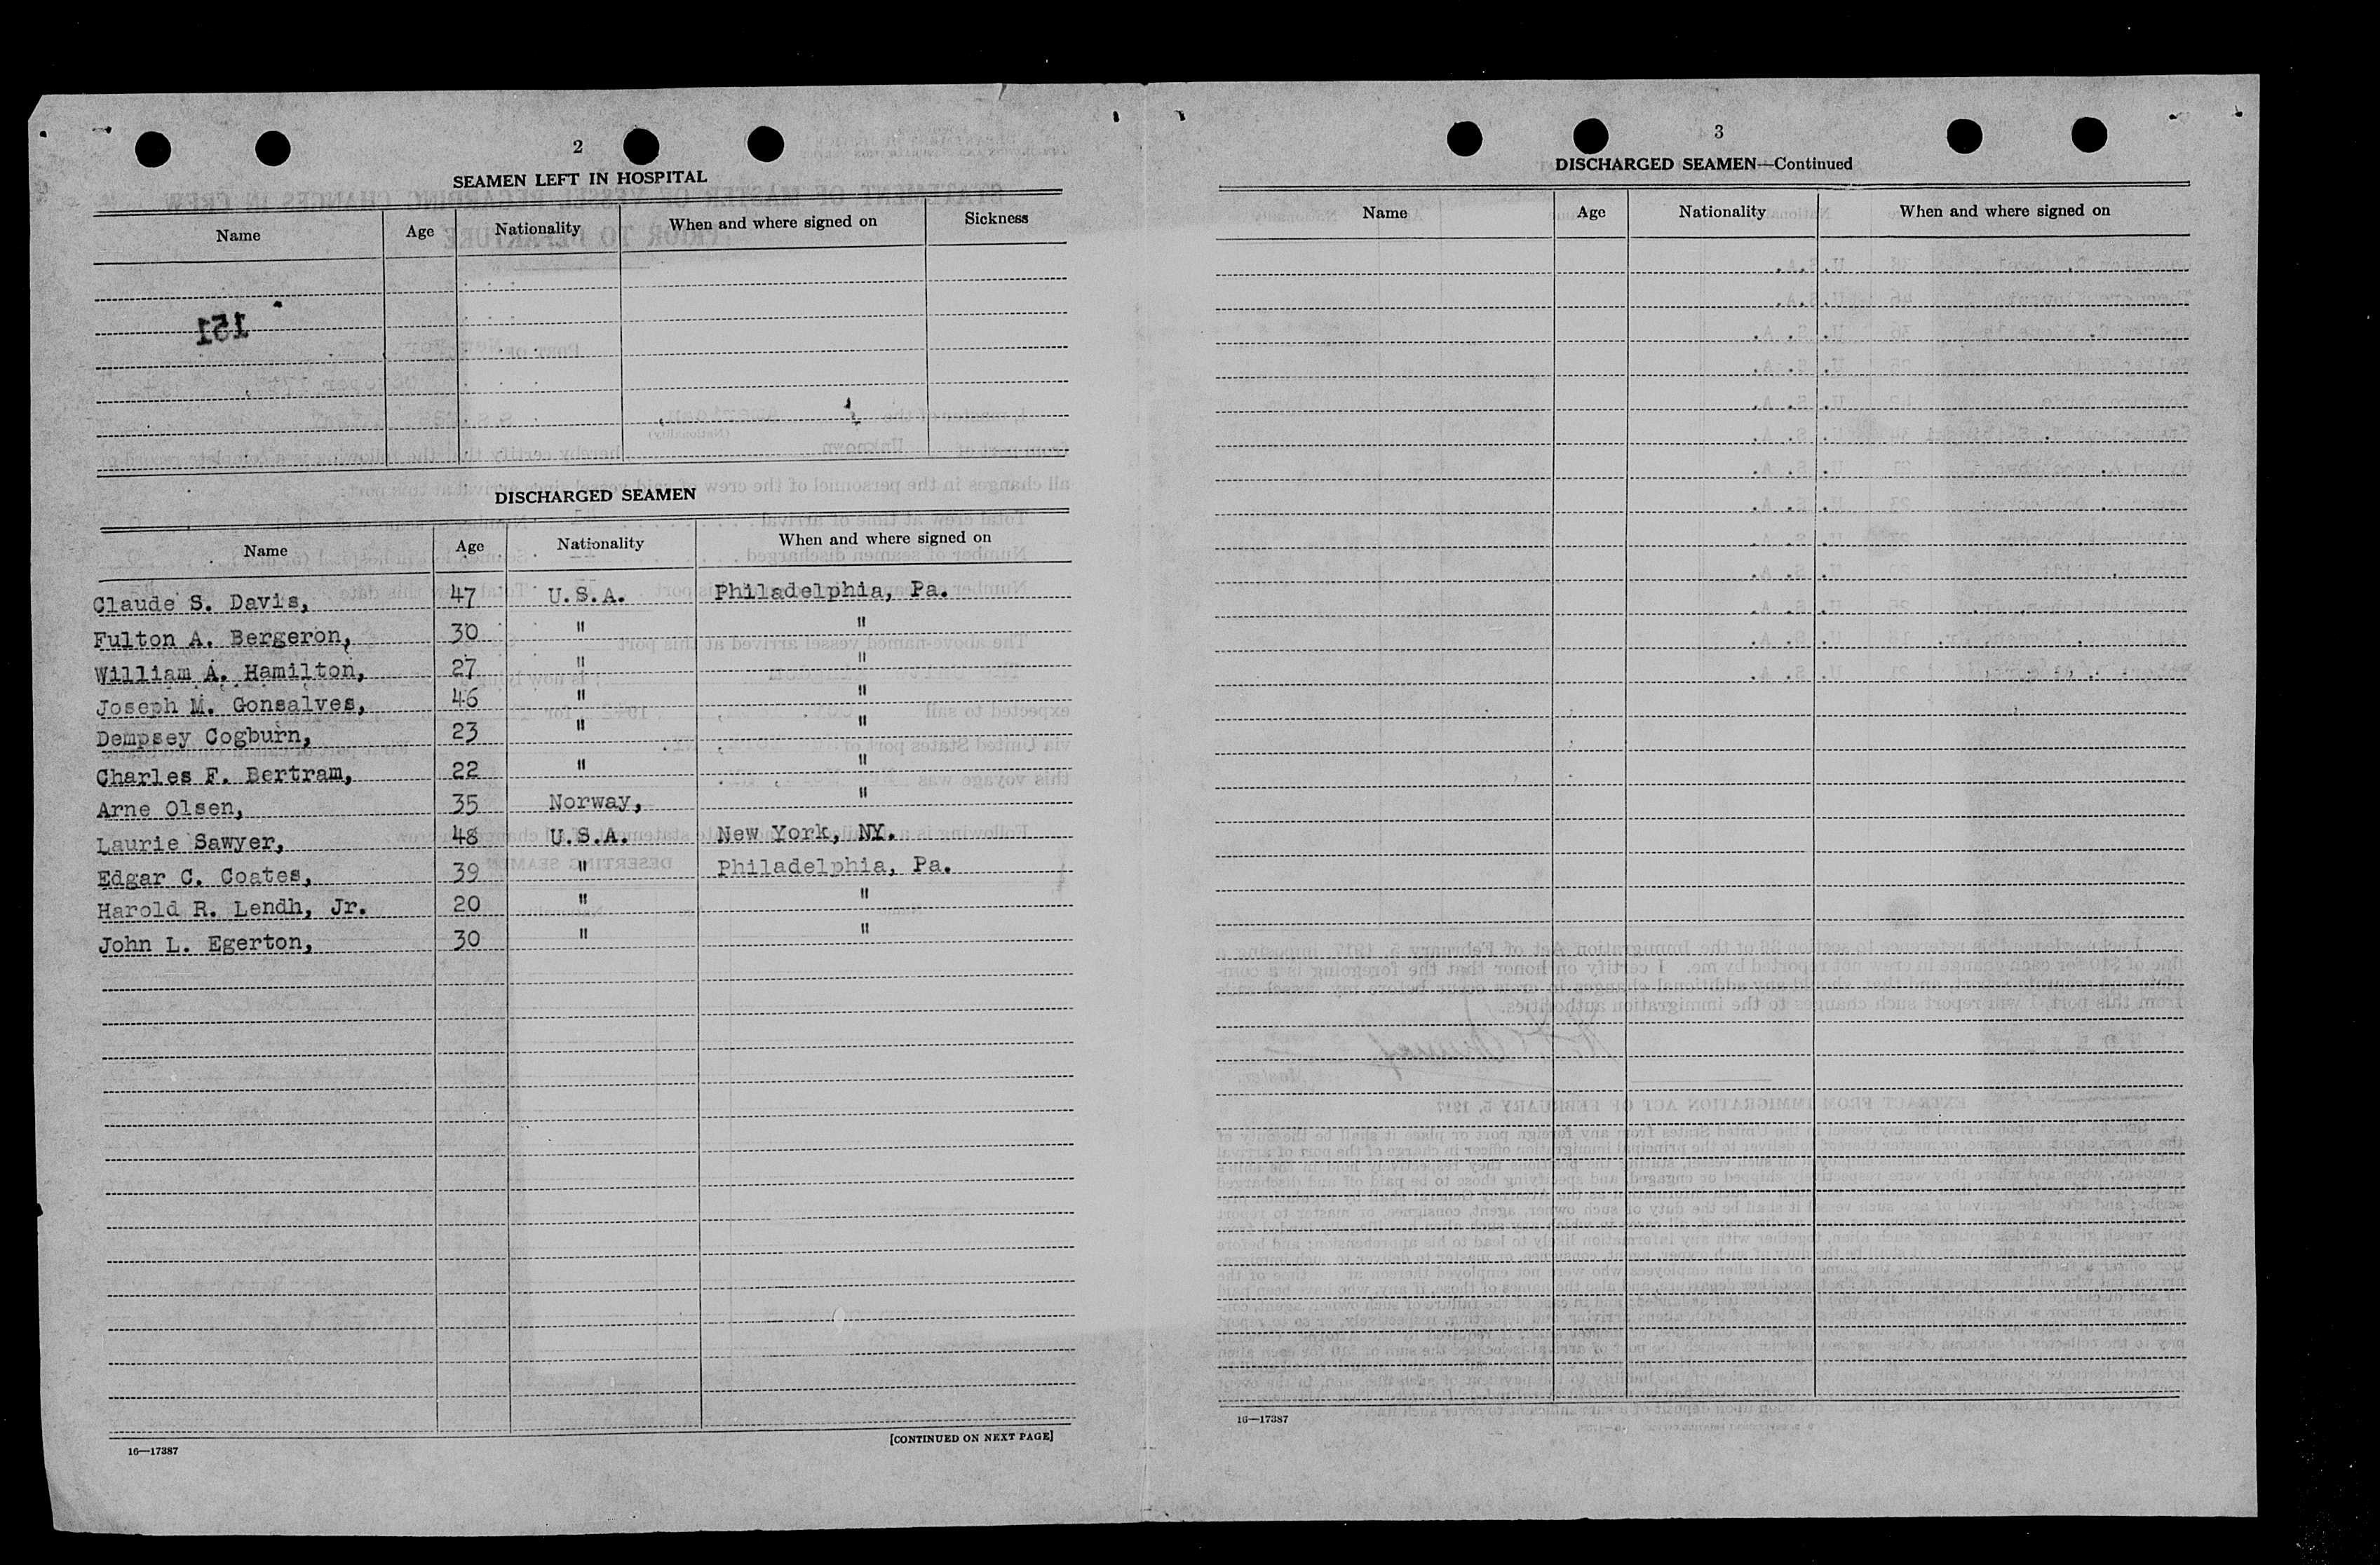 2
SEAMEN LEFT IN HOSPITAL
Name Age Nationality When and where signed on Sickness
151
DISCHARGED SEAMEN
Name Age Nationality When and where signed on
Claude S. Davis, 47 U.S.A. Philadelphia, Pa.
Fulton A. Bergeron, 30 " "
William A. Hamilton, 27 " "
Joseph M. Gonsalves, 46 " "
Dempsey Cogburn, 23 " "
Charles F. Bertram, 22 " "
Arne Olsen, 35 Norway, "
Laurie Sawyer, 48 U.S.A. New York, NY.
Edgar C. Coates, 39 " Philadelphia, Pa.
Harold R. Lendh, Jr. 20 " "
John L. Egerton, 30 " "
16—17387
[CONTINUED ON NEXT PAGE]
3
DISCHARGED SEAMEN—Continued
Name Age Nationality When and where signed on
16—17387